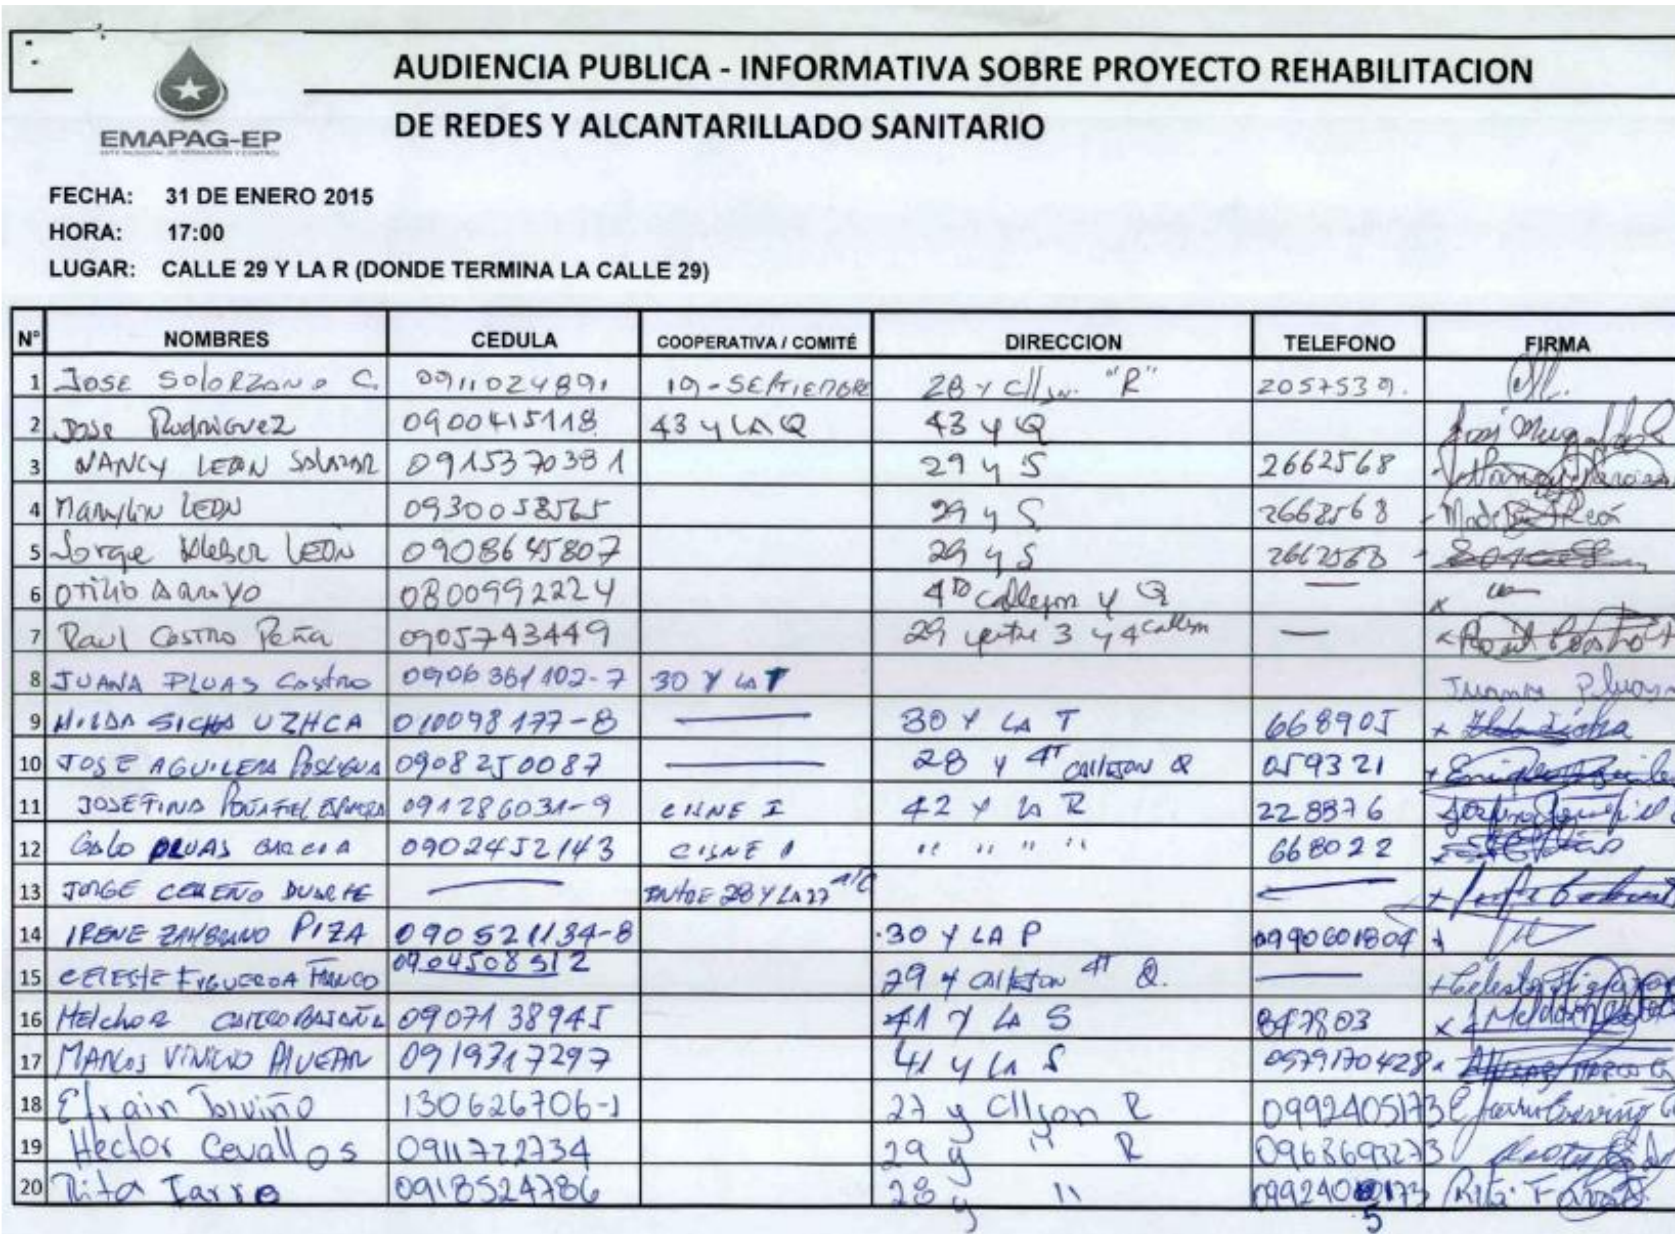 AUDIENCIA PUBLICA - INFORMATIVA SOBRE PROYECTO REHABILITACION
DE REDES Y ALCANTARILLADO SANITARIO
EMAPAG-EP
FECHA: 31 DE ENERO 2015
HORA: 17:00
LUGAR: CALLE 29 Y LA R (DONDE TERMINA LA CALLE 29)
N° NOMBRES CEDULA COOPERATIVA / COMITÉ DIRECCION TELEFONO FIRMA
1 JOSE SOLORZANO C. 0911024891 19-SEPTIEMBRE 28 Y "R" 2057539.
2 Jose Rodriguez 0900415118 43 y LA Q 43 y Q
3 NANCY LEON SALAZAR 0915370381 29 y S 2662568
4 Marylin LEON 0930058565 29 y S 2662568
5 Jorge Kleber LEON 0908645807 29 y S 2662568
6 OTILIO Arroyo 0800992224 4to callejon y Q —
7 Raul Castro Peña 0905743449 29 entre 3 y 4 —
8 JUANA PLUAS Castro 0906361102-7 30 Y LA T Juana Pluas
9 HILDA SICHA UZHCA 010098177-8 — 30 Y LA T 668905
10 JOSE AGUILERA 0908250087 — 28 Y 4T CALLEJON Q 059321
11 JOSEFINA 091286031-9 CISNE I 42 Y LA R 228876
12 GALO PLUAS GARCIA 0902452143 CISNE I " " " " 668022
13 JORGE CEDEÑO DUARTE — ENTRE 28 Y LA 27 —
14 IRENE ZAMBRANO PIZA 090521134-8 30 Y LA P 0990601804
15 CELESTE FIGUEROA FRANCO 0904508512 29 Y CALLEJON 4T Q. — Celeste
16 MELCHOR 0907138945 41 Y LA S 847803
17 MARCOS VINICIO ALVEAR 0919317297 41 y LA S 0579170428
18 Efrain Triviño 130626706-1 27 y Clljon R 0992405173
19 Hector Cevallos 0911722734 29 y " R 0968693273
20 Rita 0918524786 28 y " Rita
5